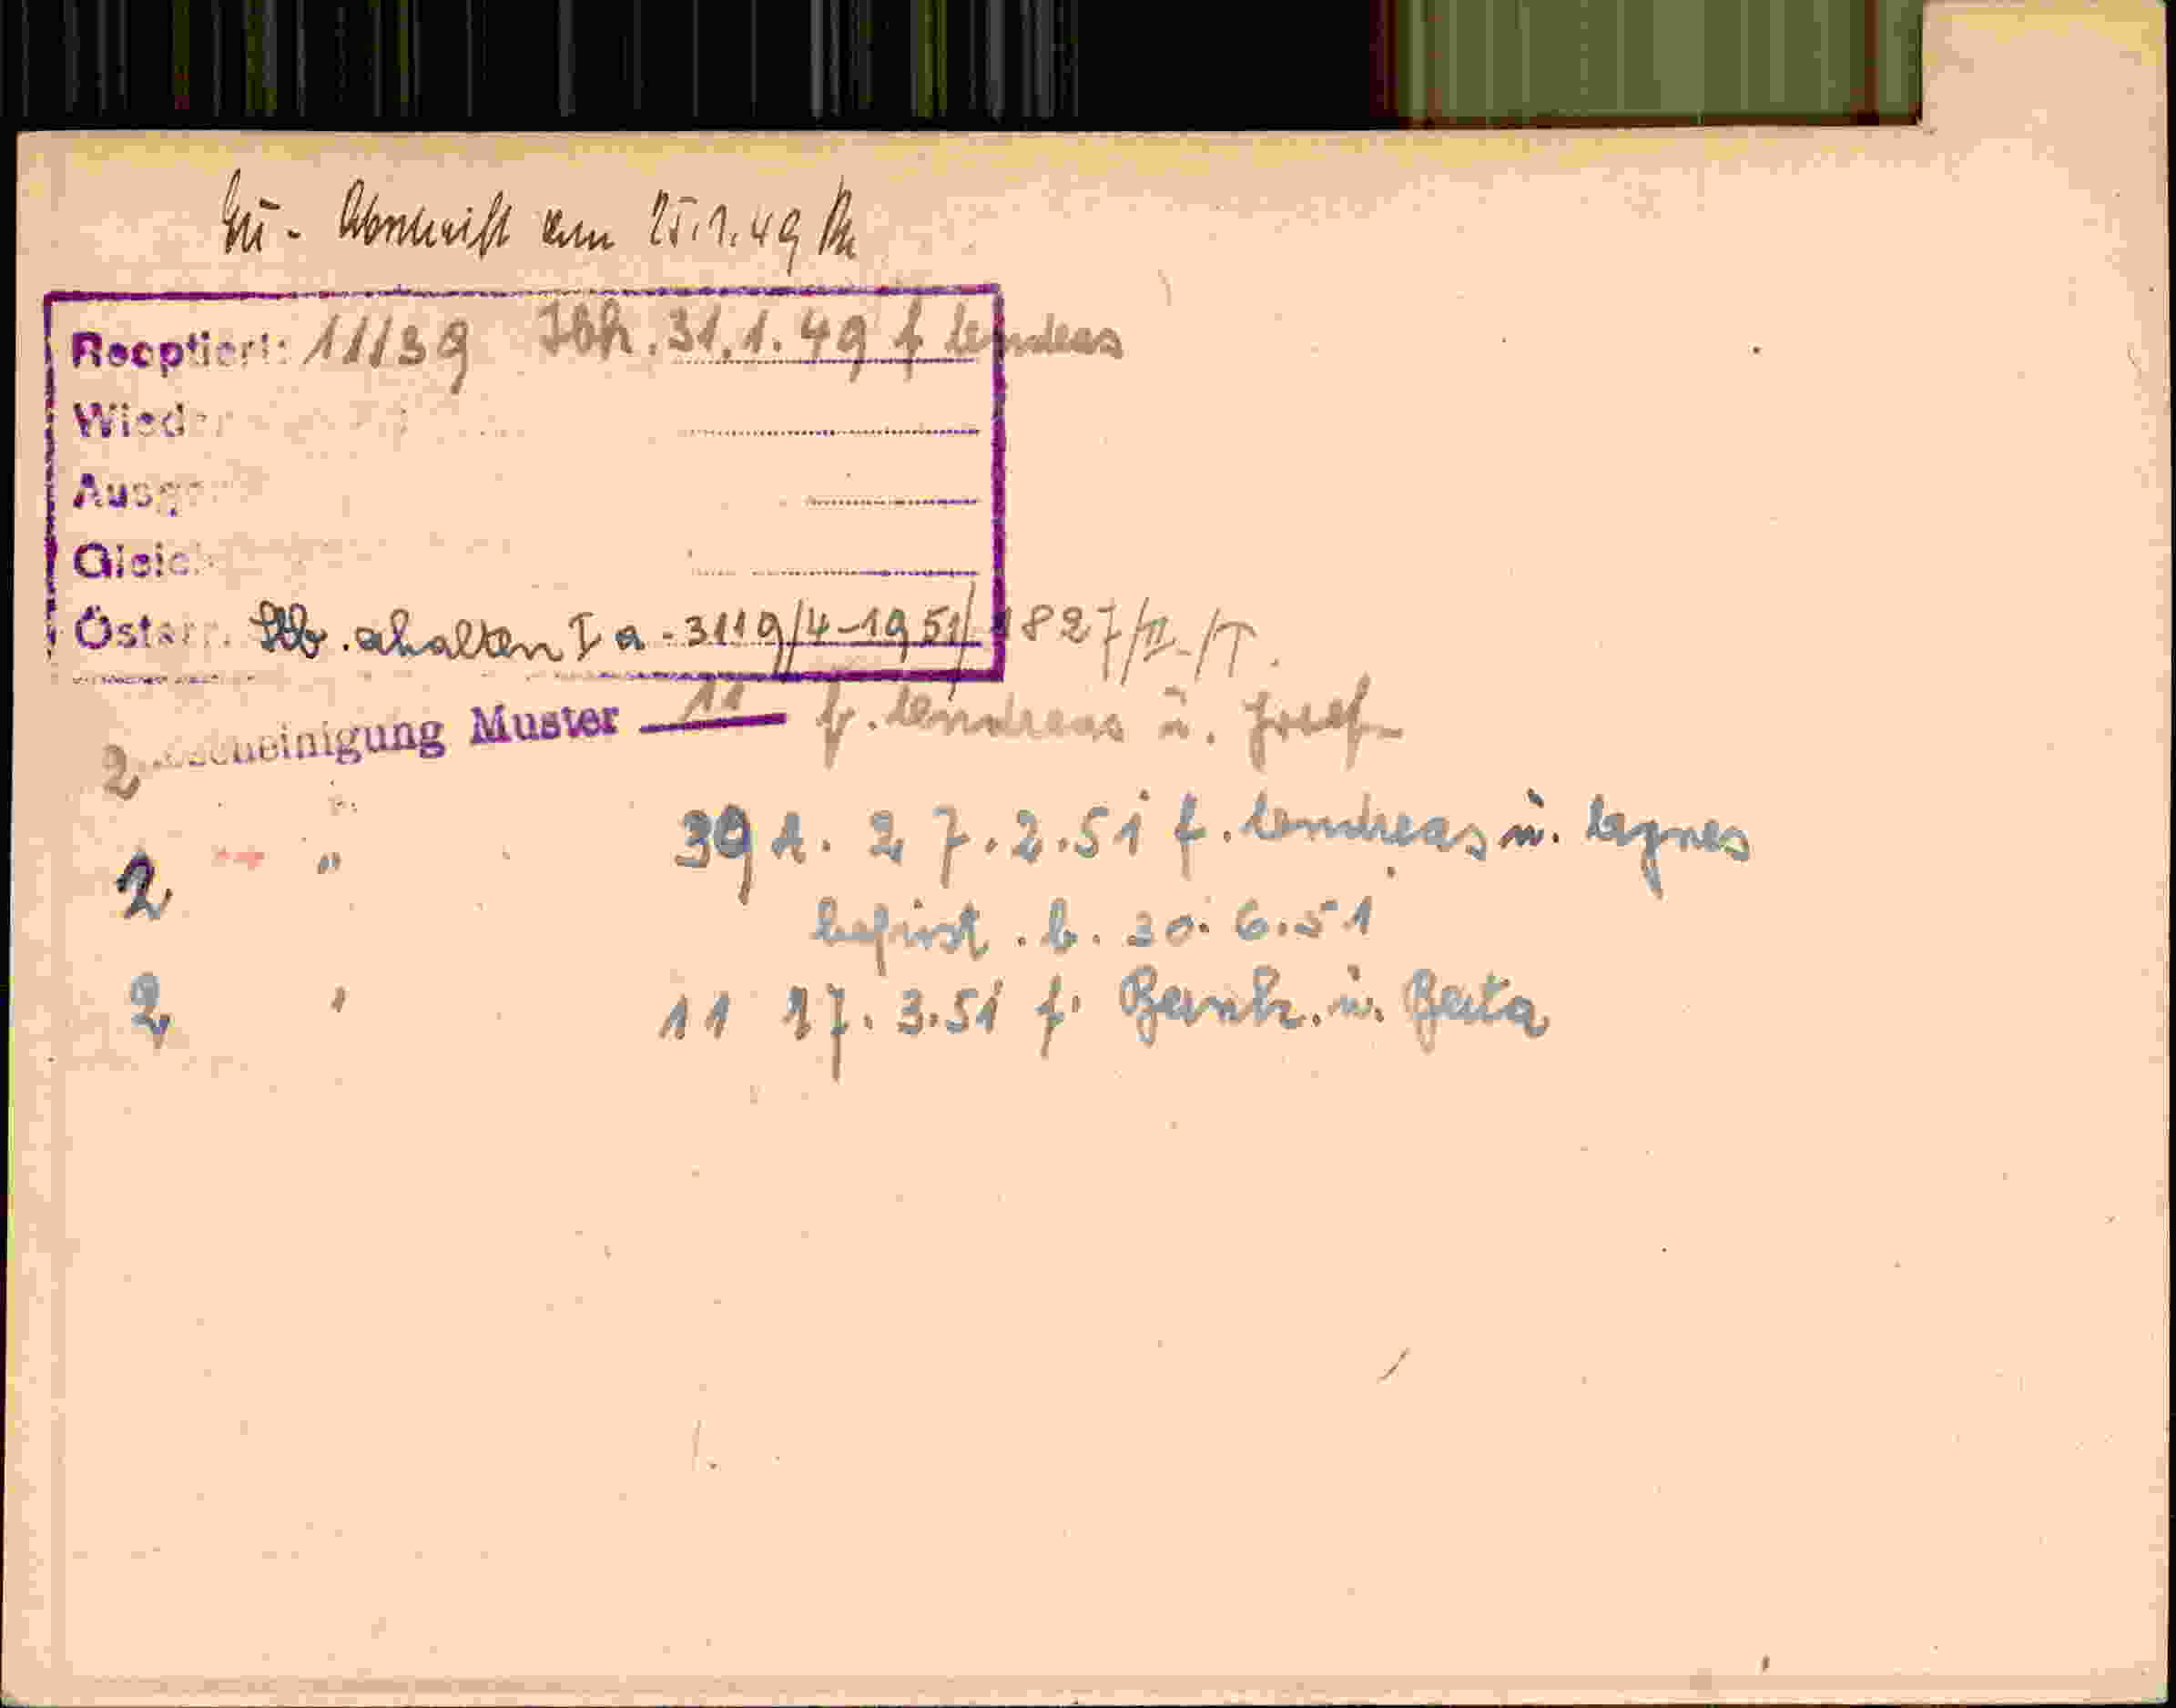 Abschrift am 25.1.49
Reoptiert: 11139 Jbk. 31.1.49 f Andreas
Wieder
Ausge
Gleich
Österr. Stb. erhalten I a - 3119/4-1951/ 1827/II-/T.
2 Bescheinigung Muster 11 f. Andreas u. Josef
2 " 39 A. 27.2.51 f. Andreas u. Agnes
befrist. b. 30.6.51
2 " 11 17.3.51 f. u. Beata